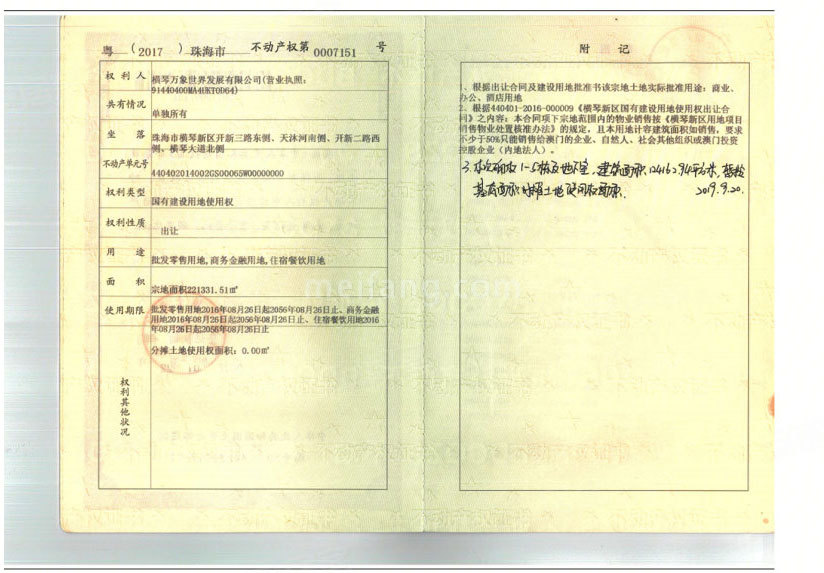 粤 （2017 ）珠海市 不动产权第 0007151 号
权利人 横琴万象世界发展有限公司(营业执照:
91440400MA4UKT0D64)
共有情况 单独所有
坐落 珠海市横琴新区开新三路东侧、天沐河南侧、开新二路西
侧、横琴大道北侧
不动产单元号 440402014002GS00065W00000000
权利类型 国有建设用地使用权
权利性质 出让
用途 批发零售用地,商务金融用地,住宿餐饮用地
面积 宗地面积221331.51㎡
使用期限 批发零售用地2016年08月26日起2056年08月26日止、商务金融
用地2016年08月26日起2056年08月26日止、住宿餐饮用地2016
年08月26日起2056年08月26日止
权利其他状况 分摊土地使用权面积: 0.00㎡
附记
1、根据出让合同及建设用地批准书该宗地土地实际批准用途：商业、
办公、酒店用地
2、根据440401-2016-000009《横琴新区国有建设用地使用权出让合
同》之内容：本合同项下宗地范围内的物业销售按《横琴新区用地项目
销售物业处置核准办法》的规定，且本用地计容建筑面积如销售，要求
不少于50%只能销售给澳门的企业、自然人、社会其他组织或澳门投资
控股企业（内地法人）。
3. 1-5栋及地下室，建筑面积
分摊土地使用权面积. 2019.9.20.
meifang.com